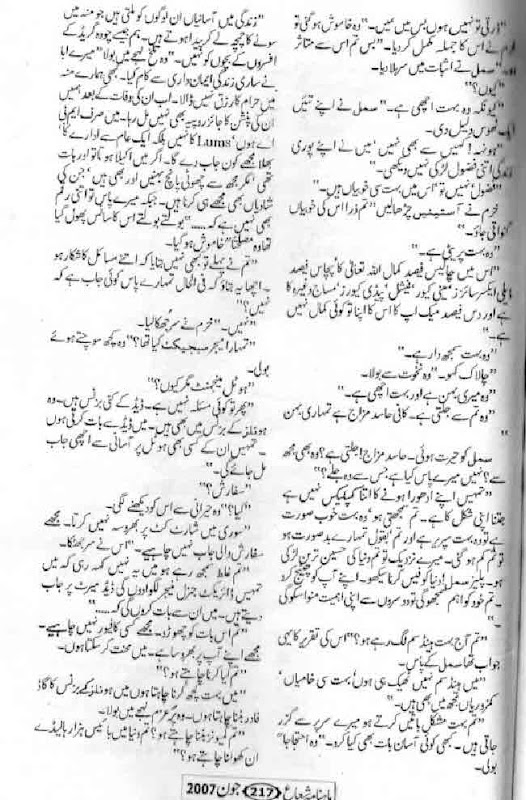 "ڈرتی تو نہیں ہوں بس میں ہمیں۔" وہ خاموش ہو گئی تو
خرم نے اس کا جملہ مکمل کر دیا۔ "بس تم اس سے متاثر
ہو۔" صمل نے اثبات میں سر ہلا دیا۔
"کیوں؟"
"کیونکہ وہ بہت اچھی ہے۔" صمل نے اپنے تئیں
ٹھوس دلیل دی۔
"ہونہہ! کہیں سے بھی نہیں' میں نے اپنی پوری
زندگی اتنی فضول لڑکی نہیں دیکھی۔"
"فضول' نہیں تو' اس میں بہت سی خوبیاں ہیں۔"
خرم نے آستینیں چڑھا لیں "تم ذرا اس کی خوبیاں
گنواتی جاؤ۔"
"وہ بہت پریٹی ہے۔"
"اس میں چالیس فیصد کمال اللہ تعالیٰ کا' پچاس فیصد
ڈیلی ایکسرسائز' مینی کیور' فیشل' پیڈی کیورز' مساج وغیرہ کا
ہے اور دس فیصد میک اپ کا اس کا اپنا تو کوئی کمال نہیں
ہے۔"
"وہ بہت سمجھ دار ہے۔"
"چالاک کہو۔" وہ نخوت سے بولا۔
"وہ میری بہن ہے اور بہت اچھی ہے۔"
"وہ تم سے جلتی ہے۔ کافی حاسد مزاج ہے تمہاری بہن
"
صمل کو حیرت ہوئی۔ حاسد مزاج! جلتی ہے؟ وہ بھی مجھ
سے؟ نہیں میرے پاس کیا ہے جس سے وہ جلے؟"
"تمہیں اپنے ادھورا ہونے کا اتنا کمپلیکس نہیں ہے
جتنا اپنی شکل کا ہے۔ تم سمجھتی ہو' وہ بہت خوب صورت
ہے تو وہ بہت سپر ہے اور تم بقول تمہارے بدصورت ہو
تو تم کم ہو گئی۔ میرے نزدیک تو تم دنیا کی حسین ترین لڑکی
ہو۔ پلیز صمل! دنیا کو فیس کرنا سیکھو۔ اپنے آپ کو چینج کرو
۔ تم خود کو اہم سمجھو گی تو دوسروں سے اپنی اہمیت منوا سکو گی
۔"
"تم آج بہت ہینڈسم لگ رہے ہو؟" اس کی تقریر کا یہی
جواب تھا صمل کے پاس۔
"میں ہینڈسم نہیں ٹھیک ہی ہوں' بہت سی خامیاں'
کمزوریاں مجھ میں بھی ہیں۔"
"تم بہت مشکل باتیں کرتے ہو میرے سر پر سے گزر
جاتی ہیں۔ کبھی کوئی آسان بات بھی کیا کرو۔" وہ احتجاجاً
بولی۔
"زندگی میں آسانیاں ان لوگوں کو ملتی ہیں جو منہ میں
سونے کا چمچہ لے کر پیدا ہوتے ہیں۔ ہم جیسے چودہ گریڈ کے
افسروں کے بچوں کو نہیں۔" وہ تلخ لہجے میں بولا "میرے ابا
نے ساری زندگی ایمان داری سے کام کیا۔ کبھی ہمارے منہ
میں حرام کا رزق نہیں ڈالا۔ اب ان کی وفات کے بعد ہمیں
ان کی پنشن کا جائز روپیہ بھی نہیں مل رہا۔ میں صرف ایم بی
اے ہوں' Lums کا نہیں بلکہ ایک عام سے ادارے کا'
بھلا مجھے کون جاب دے گا۔ اگر میں اکیلا ہوتا تو اور بات
تھی' مگر مجھ سے چھوٹی پانچ بہنیں اور بھی ہیں' جن کی
شادیاں بھی مجھے ہی کرنا ہیں۔ جبکہ میرے پاس تو اتنی رقم
بھی نہیں ہے کہ....." بولتے بولتے اس کا سانس پھول گیا
تھا وہ مصلحتاً خاموش ہو گیا۔
"تم نے پہلے تو کبھی نہیں بتایا کہ اتنے مسائل کا شکار ہو
۔ اچھا یہ بتاؤ کہ فی الحال تمہارے پاس کوئی جاب ہے کہ
نہیں؟"
"نہیں۔" خرم نے سر جھکا لیا۔
"تمہارا میجر سبجیکٹ کیا تھا؟" وہ کچھ سوچتے ہوئے
بولی۔
"ہوٹل مینجمنٹ مگر کیوں؟"
"پھر تو کوئی مسئلہ نہیں ہے۔ ڈیڈ کے کئی بزنس ہیں۔ وہ
ہوٹلز کے بزنس میں بھی ہیں۔ میں ڈیڈ سے بات کرتی ہوں
۔ تمہیں ان کے کسی بھی ہوٹل پر آسانی سے اچھی جاب
مل جائے گی۔"
"سفارش؟"
"کیا؟" وہ حیرانی سے اس کو دیکھنے لگی۔
"سوری میں شارٹ کٹ پر بھروسہ نہیں کرتا۔ مجھے
سفارش والی جاب نہیں چاہیے۔" اس نے سر جھٹکا۔
"تم غلط سمجھ رہے ہو میں یہ نہیں کہہ رہی کہ میں
تمہیں ڈائریکٹ جنرل منیجر لگوا دوں گی ڈیڈ میرٹ پر جاب
دیتے ہیں۔ میں ان سے بات کروں گی کہ....."
"تم اس بات کو چھوڑو۔ مجھے کسی کا فیور نہیں چاہیے۔
مجھے اپنے آپ پر بھروسا ہے۔ میں محنت کر سکتا ہوں۔
"تم کیا کرنا چاہتے ہو؟"
"میں بہت کچھ کرنا چاہتا ہوں میں ہوٹلز کے بزنس کا گاڈ
فادر بننا چاہتا ہوں۔ وہ پرعزم لہجے میں بولا۔
"تم کیوں بننا چاہتے ہو؟ تم دنیا میں بائیس ہزار ہالیڈے
ان کھولنا چاہتے ہو؟"
ماہنامہ شعاع 217 جون 2007